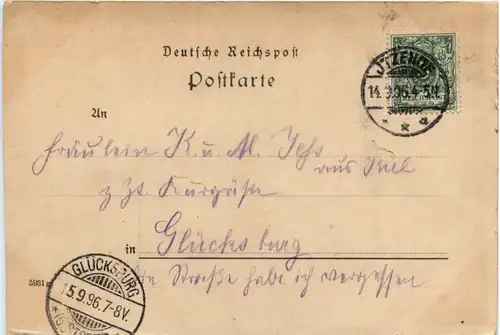 Deutsche Reichspost
Postkarte
JTZEHOE
14.9.96.4-5N.
An
Fräulein K. u. M. Jess
aus Kiel
z Zt. Kurgäste
in Glücksburg
die Straße habe ich vergessen
5981
GLÜCKSBURG
15.9.96.7-8V.